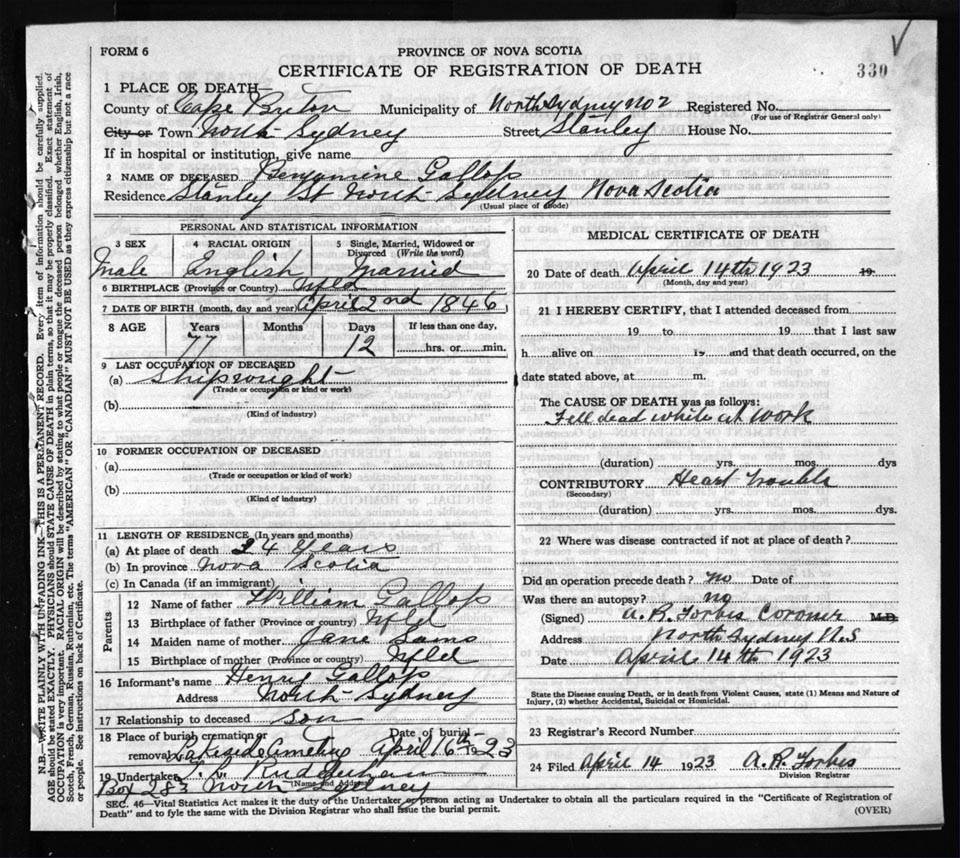 FORM 6
PROVINCE OF NOVA SCOTIA
CERTIFICATE OF REGISTRATION OF DEATH
330
1 PLACE OF DEATH
County of Cape Breton Municipality of North Sydney No 2 Registered No.
(For use of Registrar General only)
City or Town North Sydney Street Stanley House No.
If in hospital or institution, give name
2 NAME OF DECEASED Benjamine Gallop
Residence Stanley St North Sydney Nova Scotia
(Usual place of abode)
PERSONAL AND STATISTICAL INFORMATION
3 SEX 4 RACIAL ORIGIN 5 Single, Married, Widowed or Divorced (Write the word)
Male English Married
6 BIRTHPLACE (Province or Country) Nfld
7 DATE OF BIRTH (month, day and year) April 2nd 1846
8 AGE Years Months Days If less than one day,
77 12 hrs. or min.
9 LAST OCCUPATION OF DECEASED
(a) Shipwright
(Trade or occupation or kind of work)
(b)
(Kind of industry)
10 FORMER OCCUPATION OF DECEASED
(a)
(Trade or occupation or kind of work)
(b)
(Kind of industry)
11 LENGTH OF RESIDENCE (In years and months)
(a) At place of death 24 years
(b) In province Nova Scotia
(c) In Canada (if an immigrant)
Parents
12 Name of father William Gallop
13 Birthplace of father (Province or country) Nfld
14 Maiden name of mother Jane Sams
15 Birthplace of mother (Province or country) Nfld
16 Informant's name Henry Gallop
Address North Sydney
17 Relationship to deceased son
18 Place of burial cremation or removal Lakeside Cemetery Date of burial April 16th 23
19 Undertaker
(Name and Address)
Box 283 North Sydney
MEDICAL CERTIFICATE OF DEATH
20 Date of death April 14th 1923 19
(Month, day and year)
21 I HEREBY CERTIFY, that I attended deceased from
19 to 19 that I last saw
h alive on 19 and that death occurred, on the
date stated above, at m.
The CAUSE OF DEATH was as follows:
Fell dead while at work
(duration) yrs. mos. dys
CONTRIBUTORY Heart trouble
(Secondary)
(duration) yrs. mos. dys.
22 Where was disease contracted if not at place of death?
Did an operation precede death? no Date of
Was there an autopsy? no
(Signed) A. R. Forbes Coroner M.D.
Address North Sydney N.S
Date April 14th 1923
State the Disease causing Death, or in death from Violent Causes, state (1) Means and Nature of
Injury, (2) whether Accidental, Suicidal or Homicidal.
23 Registrar's Record Number
24 Filed April 14 1923 A. R. Forbes
Division Registrar
SEC. 46—Vital Statistics Act makes it the duty of the Undertaker or person acting as Undertaker to obtain all the particulars required in the "Certificate of Registration of
Death" and to fyle the same with the Division Registrar who shall issue the burial permit.
(OVER)
N.B.—WRITE PLAINLY WITH UNFADING INK—THIS IS A PERMANENT RECORD. Every item of information should be carefully supplied.
AGE should be stated EXACTLY. PHYSICIANS should STATE CAUSE OF DEATH in plain terms, so that it may be properly classified. Exact statement of
OCCUPATION is very important. RACIAL ORIGIN will be described by stating to what people or tongue the deceased person belonged whether English, Irish,
Scotch, French, German, Russian, Ruthenian, etc. The terms "AMERICAN" OR "CANADIAN" MUST NOT BE USED as they express citizenship but not a race
or people. See instructions on back of Certificate.